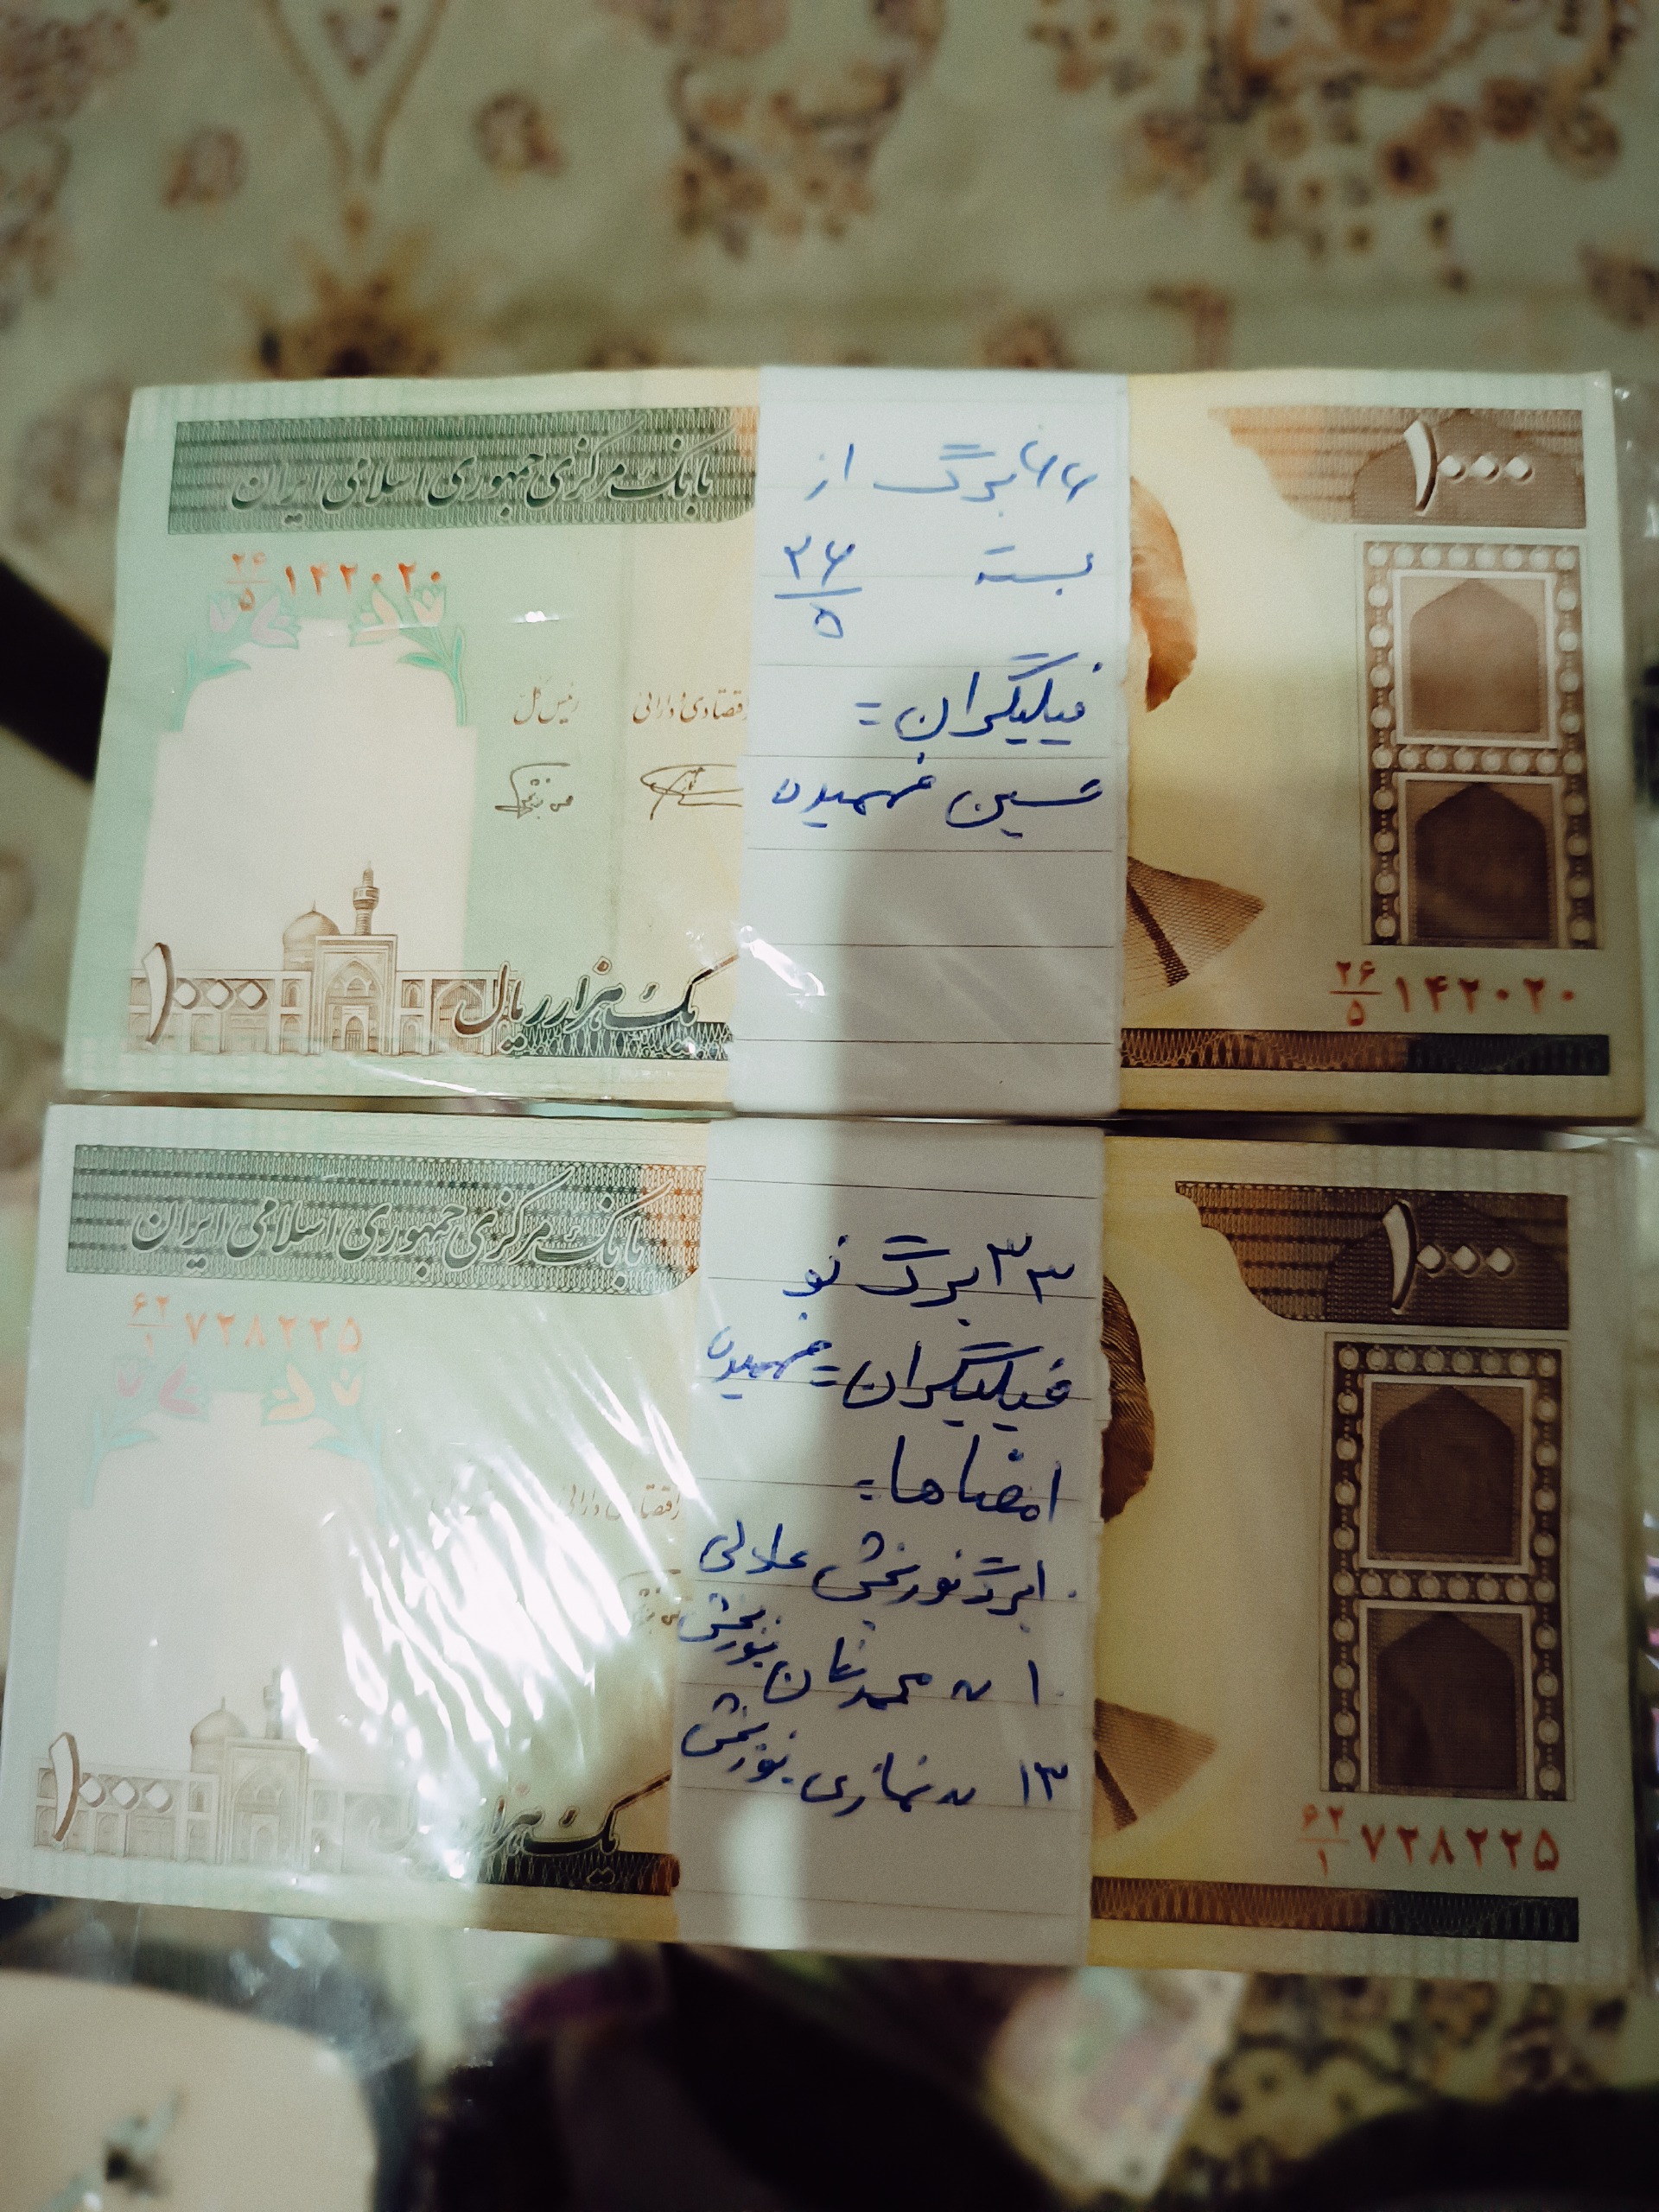 بانک مرکزی جمهوری اسلامی ایران
۱۰۰۰
۲۶/۵ ۱۴۲۰۲۰
رئیس کل
اقتصادی و دارائی
۶۶ برگ از
بسته ۲۶/۵
فیلیگران =
حسین فهمیده
۱۰۰۰
یک هزار ریال
۲۶/۵ ۱۴۲۰۲۰
بانک مرکزی جمهوری اسلامی ایران
۱۰۰۰
۶۲/۱ ۷۲۸۲۲۵
اقتصادی و دارائی
۳۳ برگ نو
فیلیگران = فهمیده
امضاها =
۱ برگ نوربخش عادلی
۱ 〃 محمدخان نوربخش
۱۳ 〃 نمازی نوربخش
۱۰۰۰
یک هزار ریال
۶۲/۱ ۷۲۸۲۲۵